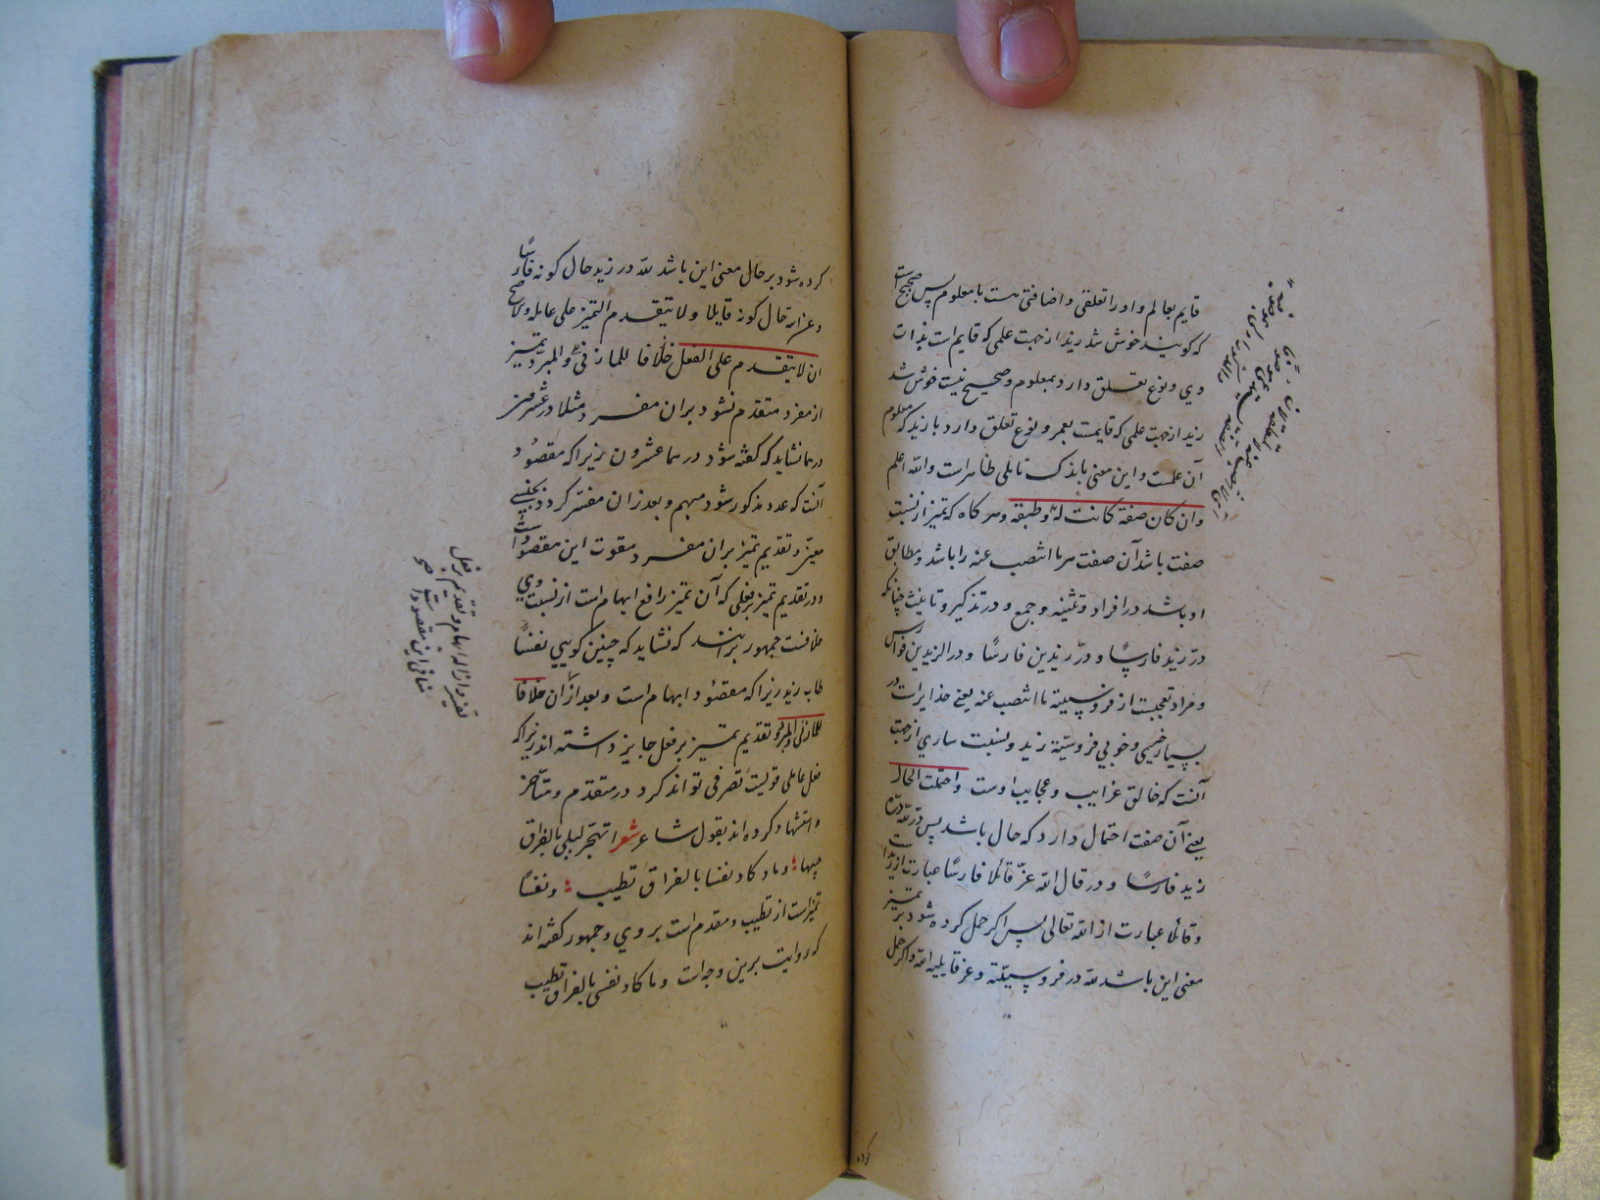 قایم بعالم و او را تعلقی و اضافتی هست با معلوم پس صحیح است
که گویند خوش شد زید از جهت علمی که قایم است بذات
وی و نوع تعلق دارد بمعلوم و صحیح نیست خوش شد
زید از جهت علمی که قایمست بعمر و نوع تعلق دارد با زید که معلوم
آن علمست و این معنی باندک تاملی ظاهر است والله اعلم
وان کان صفة کانت له و طبقه و هر گاه که تمیز از نسبت
صفت باشد آن صفت مر ما انتصب عنه را باشد و مطابق
او باشد در افراد و تثنیه و جمع و در تذکیر و تانیث چنانکه
در زید فارسًا و در زیدین فارسًا و در الزیدین فوارس
و مراد تعجبست از فروسیته ما انتصب عنه یعنی خدایراست در
بسیار خیمی و خوبی فروسیّة زید و بنسبت ساری از جهت
آنست که خالق غرایب و عجایب اوست واحتملت الحال
یعنی آن صفت احتمال دارد که حال باشد پس در لله درّه
زید فارسًا و در قال الله عزّ قائلا فارسًا عبارت از زید است
و قائلا عبارت از الله تعالی پس اکر حمل کرده شود بر تمیز
معنی این باشد لله در فروسیّته و عز قایلیه الله واکر حمل
کرده
کرده شود بر حال معنی این باشد لله در زید حال کونه فارسًا
و عز الله حال کونه قایلا ولا یتقدم التمیز علی عامله والاصح
ان لا یتقدم علی الفعل خلافا للمازنی والمبرّد تمیز
از مفرد متقدم نشود بران مفرد مثلا در عشرون
درهما نشاید که کفته شود درهما عشرون زیرا که مقصود
آنست که عدد مذکور شود مبهم و بعد زان مفسّر کردد بجنسی
معیّن و تقدیم تمیز بران مفرد مفوت این مقصود است
و در تقدیم تمیز بر فعلی که آن تمیز رافع ابهام است از نسبت وی
خلافست جمهور برانند که نشاید که چنین کویی نفسًا
طاب زید زیرا که مقصود ابهام است و بعد ازان خلافا
للمازنی والمبرد و تقدیم تمییز بر فعل جایز داشته اند زیرا که
فعل عاملی قویست تصرفی تواند کرد در متقدم و متأخر
و استشهاد کرده اند بقول شاعر شعر اتهجر لیلی بالفراق
حبیبها؛ وما کاد نفسا بالفراق تطیب؛ ونفسًا
تمیز است از تطیب و مقدم است بر وی و جمهور کفته اند
که روایت برین وجه است وما کاد نفسی بالفراق تطیب
تفسیر و ازاله ابهام و تقدیم بر فعل
منافی این مقصود است